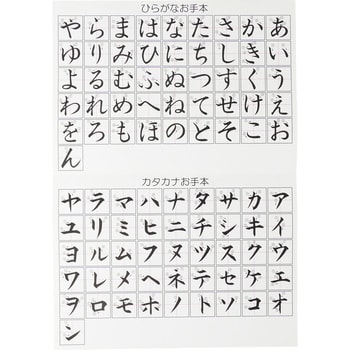 ひらがなお手本
あいうえお
かきくけこ
さしすせそ
たちつてと
なにぬねの
はひふへほ
まみむめも
らりるれろ
やゆよわをん
カタカナお手本
アイウエオ
カキクケコ
サシスセソ
タチツテト
ナニヌネノ
ハヒフヘホ
マミムメモ
ラリルレロ
ヤユヨワヲン